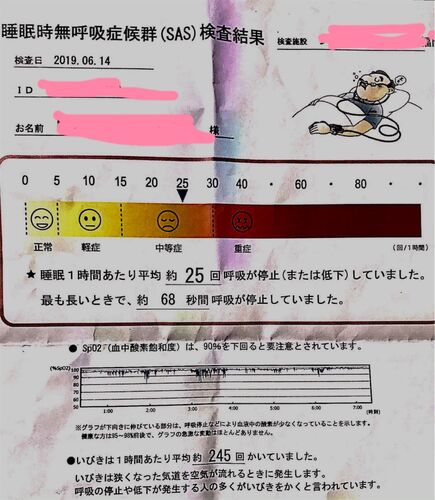 睡眠時無呼吸症候群(SAS)検査結果 検査施設
検査日 2019.06.14
ID
お名前 様
0 5 10 15 20 25 30 40 ・ 60 ・ 80 ・ ・
正常 軽症 中等症 重症 (回/1時間)
★ 睡眠1時間あたり平均 約 25 回呼吸が停止(または低下)していました。
最も長いときで、約 68 秒間呼吸が停止していました。
● SpO2 (血中酸素飽和度) は、90%を下回ると要注意とされています。
(%SpO2)
100
90
80
70
60
50
1:00 2:00 3:00 4:00 5:00 6:00 7:00 (時刻)
※グラフが下向きに伸びている部分は、呼吸停止などにより血液中の酸素が少なくなっていることを示します。
健康な方は95～98%前後で、グラフの急激な変動はほとんどありません。
●いびきは1時間あたり平均 約 245 回かいていました。
いびきは狭くなった気道を空気が流れるときに発生します。
呼吸の停止や低下が発生する人の多くがいびきをかくと言われています。